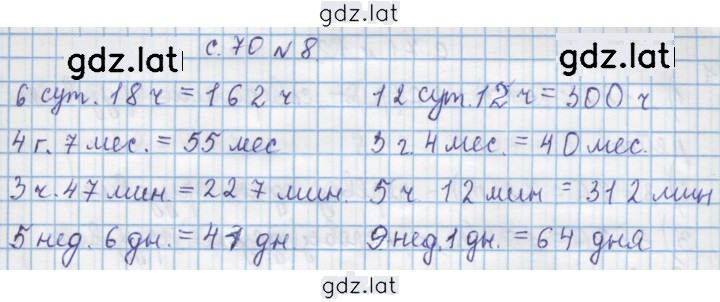 gdz.lat
gdz.lat
с. 70 №8
gdz.lat
6 сут. 18 ч = 162 ч
12 сут. 12 ч = 300 ч
4 г. 7 мес. = 55 мес
3 г. 4 мес. = 40 мес.
3 ч. 47 мин. = 227 мин.
5 ч 12 мин = 312 мин
5 нед. 6 дн. = 41 дн
9 нед. 1 дн. = 64 дня
gdz.lat